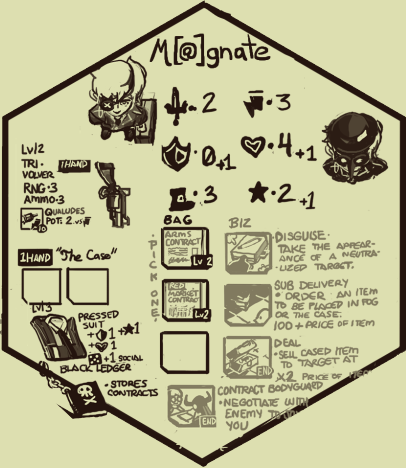 M[@]gnate
· 2
· 3
· 0+1
· 4+1
· 3
· 2+1
Lvl2
TRI-
VOLVER
RNG·3
AMMO·3
1HAND
QUALUDES
POT: 2 vs
1HAND "The Case"
Lvl3
PRESSED
SUIT
+1 +1
+ 1
+1 SOCIAL
BLACK LEDGER
· STORES
CONTRACTS
BAG
· PICK ONE ·
ARMS
CONTRACT
Lv 2
RED
MARKET
CONTRACT
Lv2
BIZ
DISGUISE·
TAKE THE APPEAR-
ANCE OF A NEUTRA-
LIZED TARGET.
SUB DELIVERY
· ORDER AN ITEM
TO BE PLACED IN FOG
OR THE CASE:
100 + PRICE OF ITEM
DEAL
· SELL CASED ITEM
TO TARGET AT
X2 PRICE OF ITEM
END
CONTRACT BODYGUARD
· NEGOTIATE WITH
ENEMY TO
YOU
END